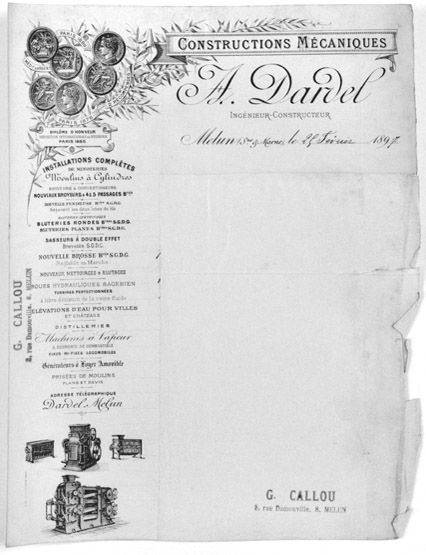 CONSTRUCTIONS MÉCANIQUES
A. Dardel
INGÉNIEUR-CONSTRUCTEUR
Melun (Sne & Marne), le 25 Février 1897
PARIS 1878
DIPLÔME D'HONNEUR
PARIS 1885
INSTALLATIONS COMPLÈTES
DE MINOTERIES
Moulins à Cylindres
BROYEURS & CONVERTISSEURS
NOUVEAUX BROYEURS à 4 & 5 PASSAGES Btés
BLUTERIES CENTRIFUGES
BLUTERIES RONDES Btées S.G.D.G.
BLUTERIES PLANES Btées S.G.D.G.
SASSEURS À DOUBLE EFFET
Brevetés S.G.D.G.
NOUVELLE BROSSE Btée S.G.D.G.
Réglable en Marche
NOUVEAUX NETTOYAGES & BLUTAGES
ROUES HYDRAULIQUES SAGEBIEN
TURBINES PERFECTIONNÉES
ÉLÉVATIONS D'EAU POUR VILLES
ET CHÂTEAUX
DISTILLERIES
Machines à Vapeur
À ÉCONOMIE DE COMBUSTIBLE
FIXES MI-FIXES LOCOMOBILES
Générateurs à Foyer Amovible
PRISÉES DE MOULINS
PLANS ET DEVIS
ADRESSE TÉLÉGRAPHIQUE
Dardel Melun
G. CALLOU
8, rue Dumonville, 8, MELUN
G. CALLOU
8, rue Dumonville, 8, MELUN